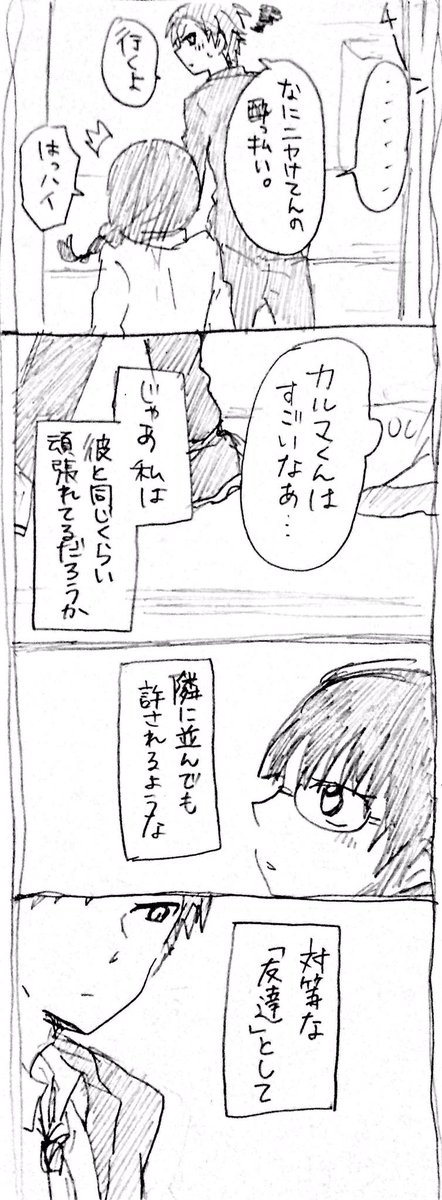 4
・・・・・・
なにニヤけてんの
酔っ払い。
行くよ
はっハイ
カルマくんは
すごいなあ…
じゃあ私は
彼と同じくらい
頑張れてるだろうか
隣に並んでも
許されるような
対等な
「友達」として